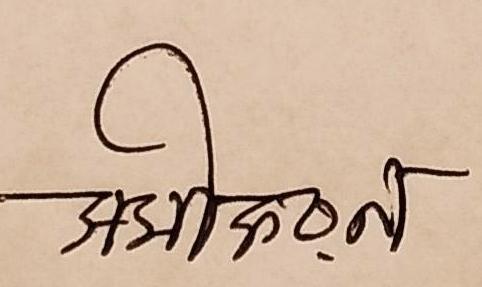 সমীকরণ